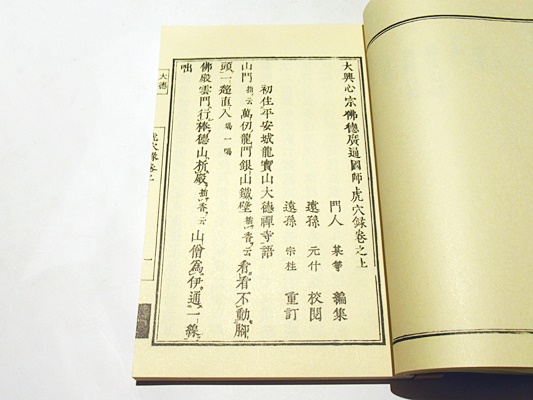 大興心宗佛德廣通國師虎穴錄卷之上
門人 某等 編集
遠孫 元什 校閱
遠孫 宗桂 重訂
初住平安城龍寶山大德禪寺語
山門指云萬仞龍門銀山鐵壁指香云看看不動脚
頭一超直入喝一喝
佛殿雲門行棒德山折殿指香云山僧爲伊通一線
咄
大德
虎穴錄卷之上
一